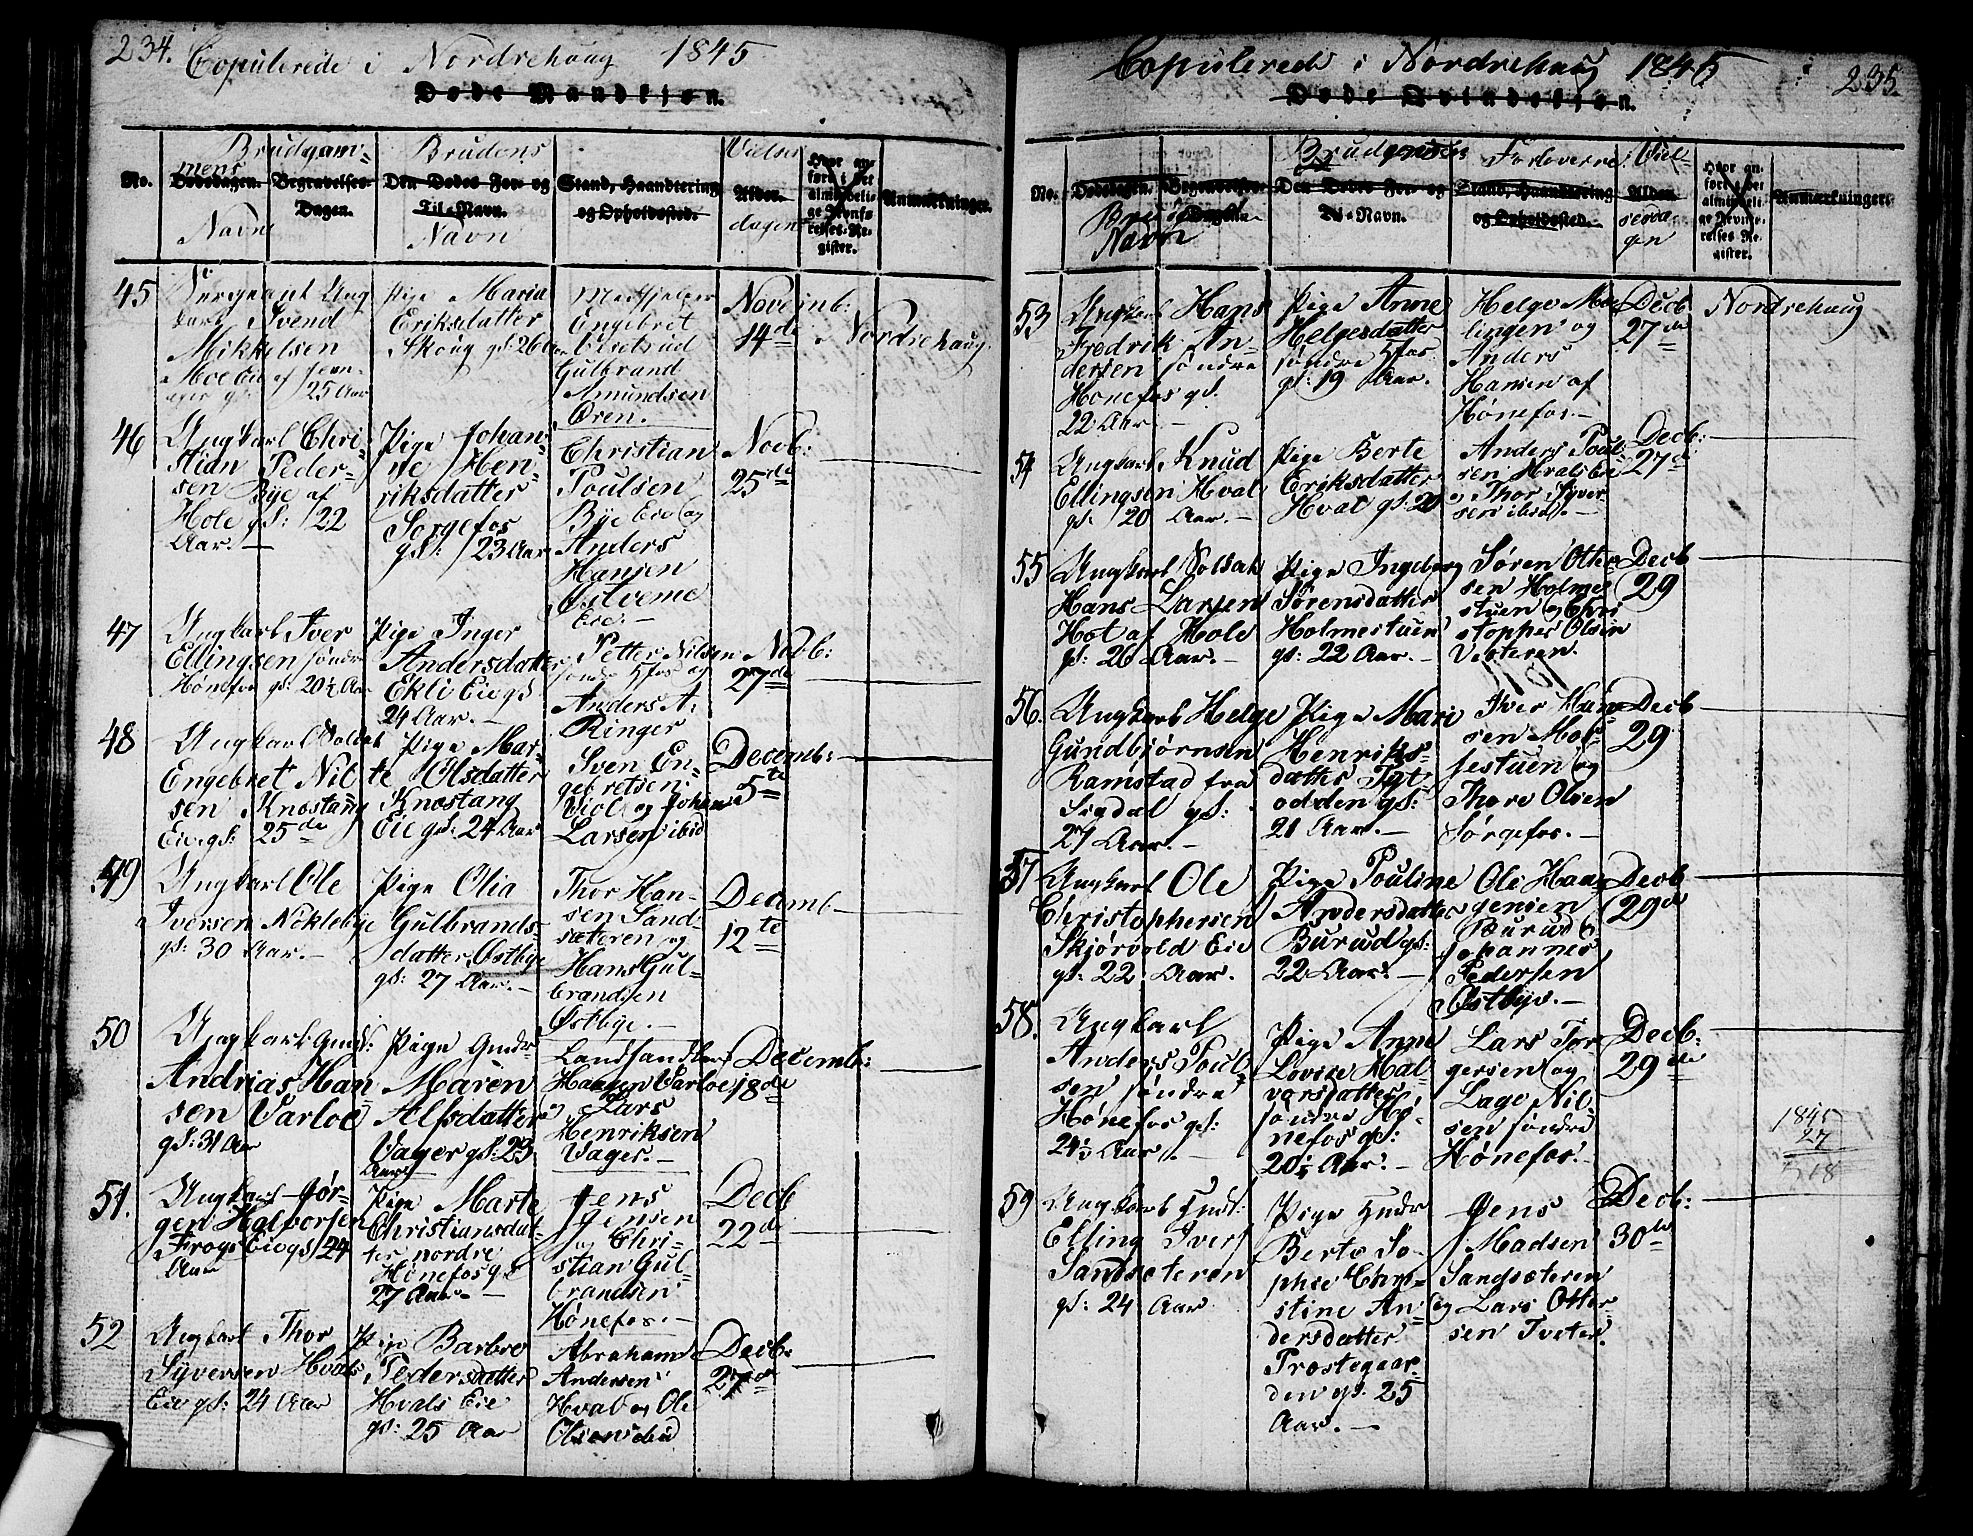 234. Copulerede i Nordrehoug 1845
Døde Mandkjøn.
No.
Brudgam-
mens
Dødsdagen. Begravelses-
Dagen.
Navn
Brudens
Den Dødes For- og
Til-Navn.
Navn
Stand, Haandtering
og Opholdssted.
Vielses
Alder.
dagen
Hvor an-
ført i det
almindeli-
ge Jevnfø-
relses-Re-
gister.
Anmærkninger.
45
Sergeant Ung
karl Svend
Mikkelsen
Moe Eie af
25 Aar
Pige Maria
Eriksdatter
Skoug gl: 26 Aar
Medhjelper
Engebret
Gulbrand
Amundsen
Øren.
Novemb:
14de
Nordrehoug
46
Ungkarl Chri-
stian Peder-
sen Bye af
Hole gl: 22
Aar. —
Pige Johan-
ne Hen-
riksdatter
Sørgefos
gl: 23 Aar
Christian
Poulsen
Bye Eie og
Anders
Hansen
Eie. —
Novb:
25de
47
Ungkarl Iver
Ellingsen søndre
Hønefos gl: 20½ Aar
Pige Inger
Andersdatter
Ekli Eie gl
24 Aar. —
Petter Nilsen
søndre Hfos og
Anders A.
Ringer
Novb:
27de
48
Ungkarl Soldat
Engebret Nil-
sen Knæstang
Eie gl: 25de
Pige Mar-
te Olsdatter
Knæstang
Eie gl: 24 Aar
Sven En-
gebretsen
Viol og Johan
Larsen ibid
Decemb:
5te
49
Ungkarl Ole
Iversen Nöklebye
gl: 30 Aar. —
Pige Olia
Gulbrands-
datter Østbye
gl: 27 Aar. —
Thor Han-
sen Sand-
sæteren og
Hans Gul-
brandsen
Østbye. —
Decemb
12te
50
Ungkarl Gmd:
Andrias Han
sen Varloe
gl: 31 Aar
Pige Gmdr
Maren
Alfsdatter
Vager gl: 23
Aar
Landhandler
Hansen Varloe
og Lars
Henriksen
Vager. —
Decemb:
18de
51.
Ungkarl Jør-
gen Halvorsen
Frogs Eie gl 24
Aar
Pige Marte
Christiansdat-
ter nordre
Hønefos gl
27 Aar. —
Jens
Jensen
og Chri-
stian Gul-
brandsen
Hønefos. —
Decb
22de
52
Ungkarl Thor
Syversen Hvals
Eie gl: 24 Aar
Pige Barbro
Pedersdatter
Hvals Eie
gl: 25 Aar
Abraham
Andersen
Hval og Ole
Olsen ibid
Decb:
27de
Copulerede i Nordrehoug 1845
235.
Døde Qvindekjøn.
No.
Dødsdagen. Begravelses-
Dagen.
Navn
Den Dødes For- og
Til-Navn.
Forloverne
Stand, Haandtering
og Opholdssted.
Viel-
Alder.
sesda-
gen
Hvor an-
ført i det
almindeli-
ge Jevnfø-
relses-Re-
gister.
Anmærkninger.
53
Ungkarl Hans
Fredrik An-
dersen søndre
Hønefos gl.
22 Aar. —
Pige Anne
Helgesdatter
søndre Hfos
gl: 19 Aar.
Helge Mo-
lingen og
Anders
Hansen af
Hønefos. —
Decb
27de
Nordrehoug
54
Ungkarl Knud
Ellingsen Hval
gl: 20 Aar. —
Pige Berte
Eriksdatter
Hval gl: 20
Anders Poul
sen Hvals Eie
og Thor Syver
sen ibid. —
Decb:
27de
55
Ungkarl Soldat
Hans Larsen
Hot af Hole
gl: 26 Aar. —
Pige Ingeborg
Sørensdatter
Holmestuen
gl: 22 Aar. —
Søren Otte
sen Holme
stuen og Chri
stopher Olsen
Vesteren.
Decb
29
56.
Ungkarl Helge
Gundbjørnsen
Ramstad fra
Sigdal gl:
27 Aar. —
Pige Mari
Henriks-
datter
odden gl:
21 Aar. —
Iver Han
sen Mos-
festuen og
Thore Olsen
Sørgefos. —
Decb
29
57
Ungkarl Ole
Christophersen
Skjørvold Eie
gl: 22 Aar.
Pige Pouline
Andersdatter
Burud gl:
22 Aar. —
Ole Haa
gensen
Burud &
Johannes
Pedersen
Østbye. —
Decb
29de
58.
Ungkarl
Anders Poul-
sen søndre
Hønefos gl:
24½ Aar. —
Pige Anne
Lovise Hal-
vorsdatter
søndre Hø-
nefos gl:
20½ Aar. —
Lars Tor
gersen og
Lage Nil-
sen søndre
Hønefos. —
Decb:
29de
1845
27
1818
59
Ungkarl Gmdr.
Elling Ivers
Sandsæteren
gl: 24 Aar.
Pige Gmdr
Berte So-
phie Chri-
stine An-
dersdatter
Prostegaar
den gl: 25
Aar. —
Jens
Madsen
Sandsæteren
og Lars Otter-
sen Tveter.
Decb:
30te